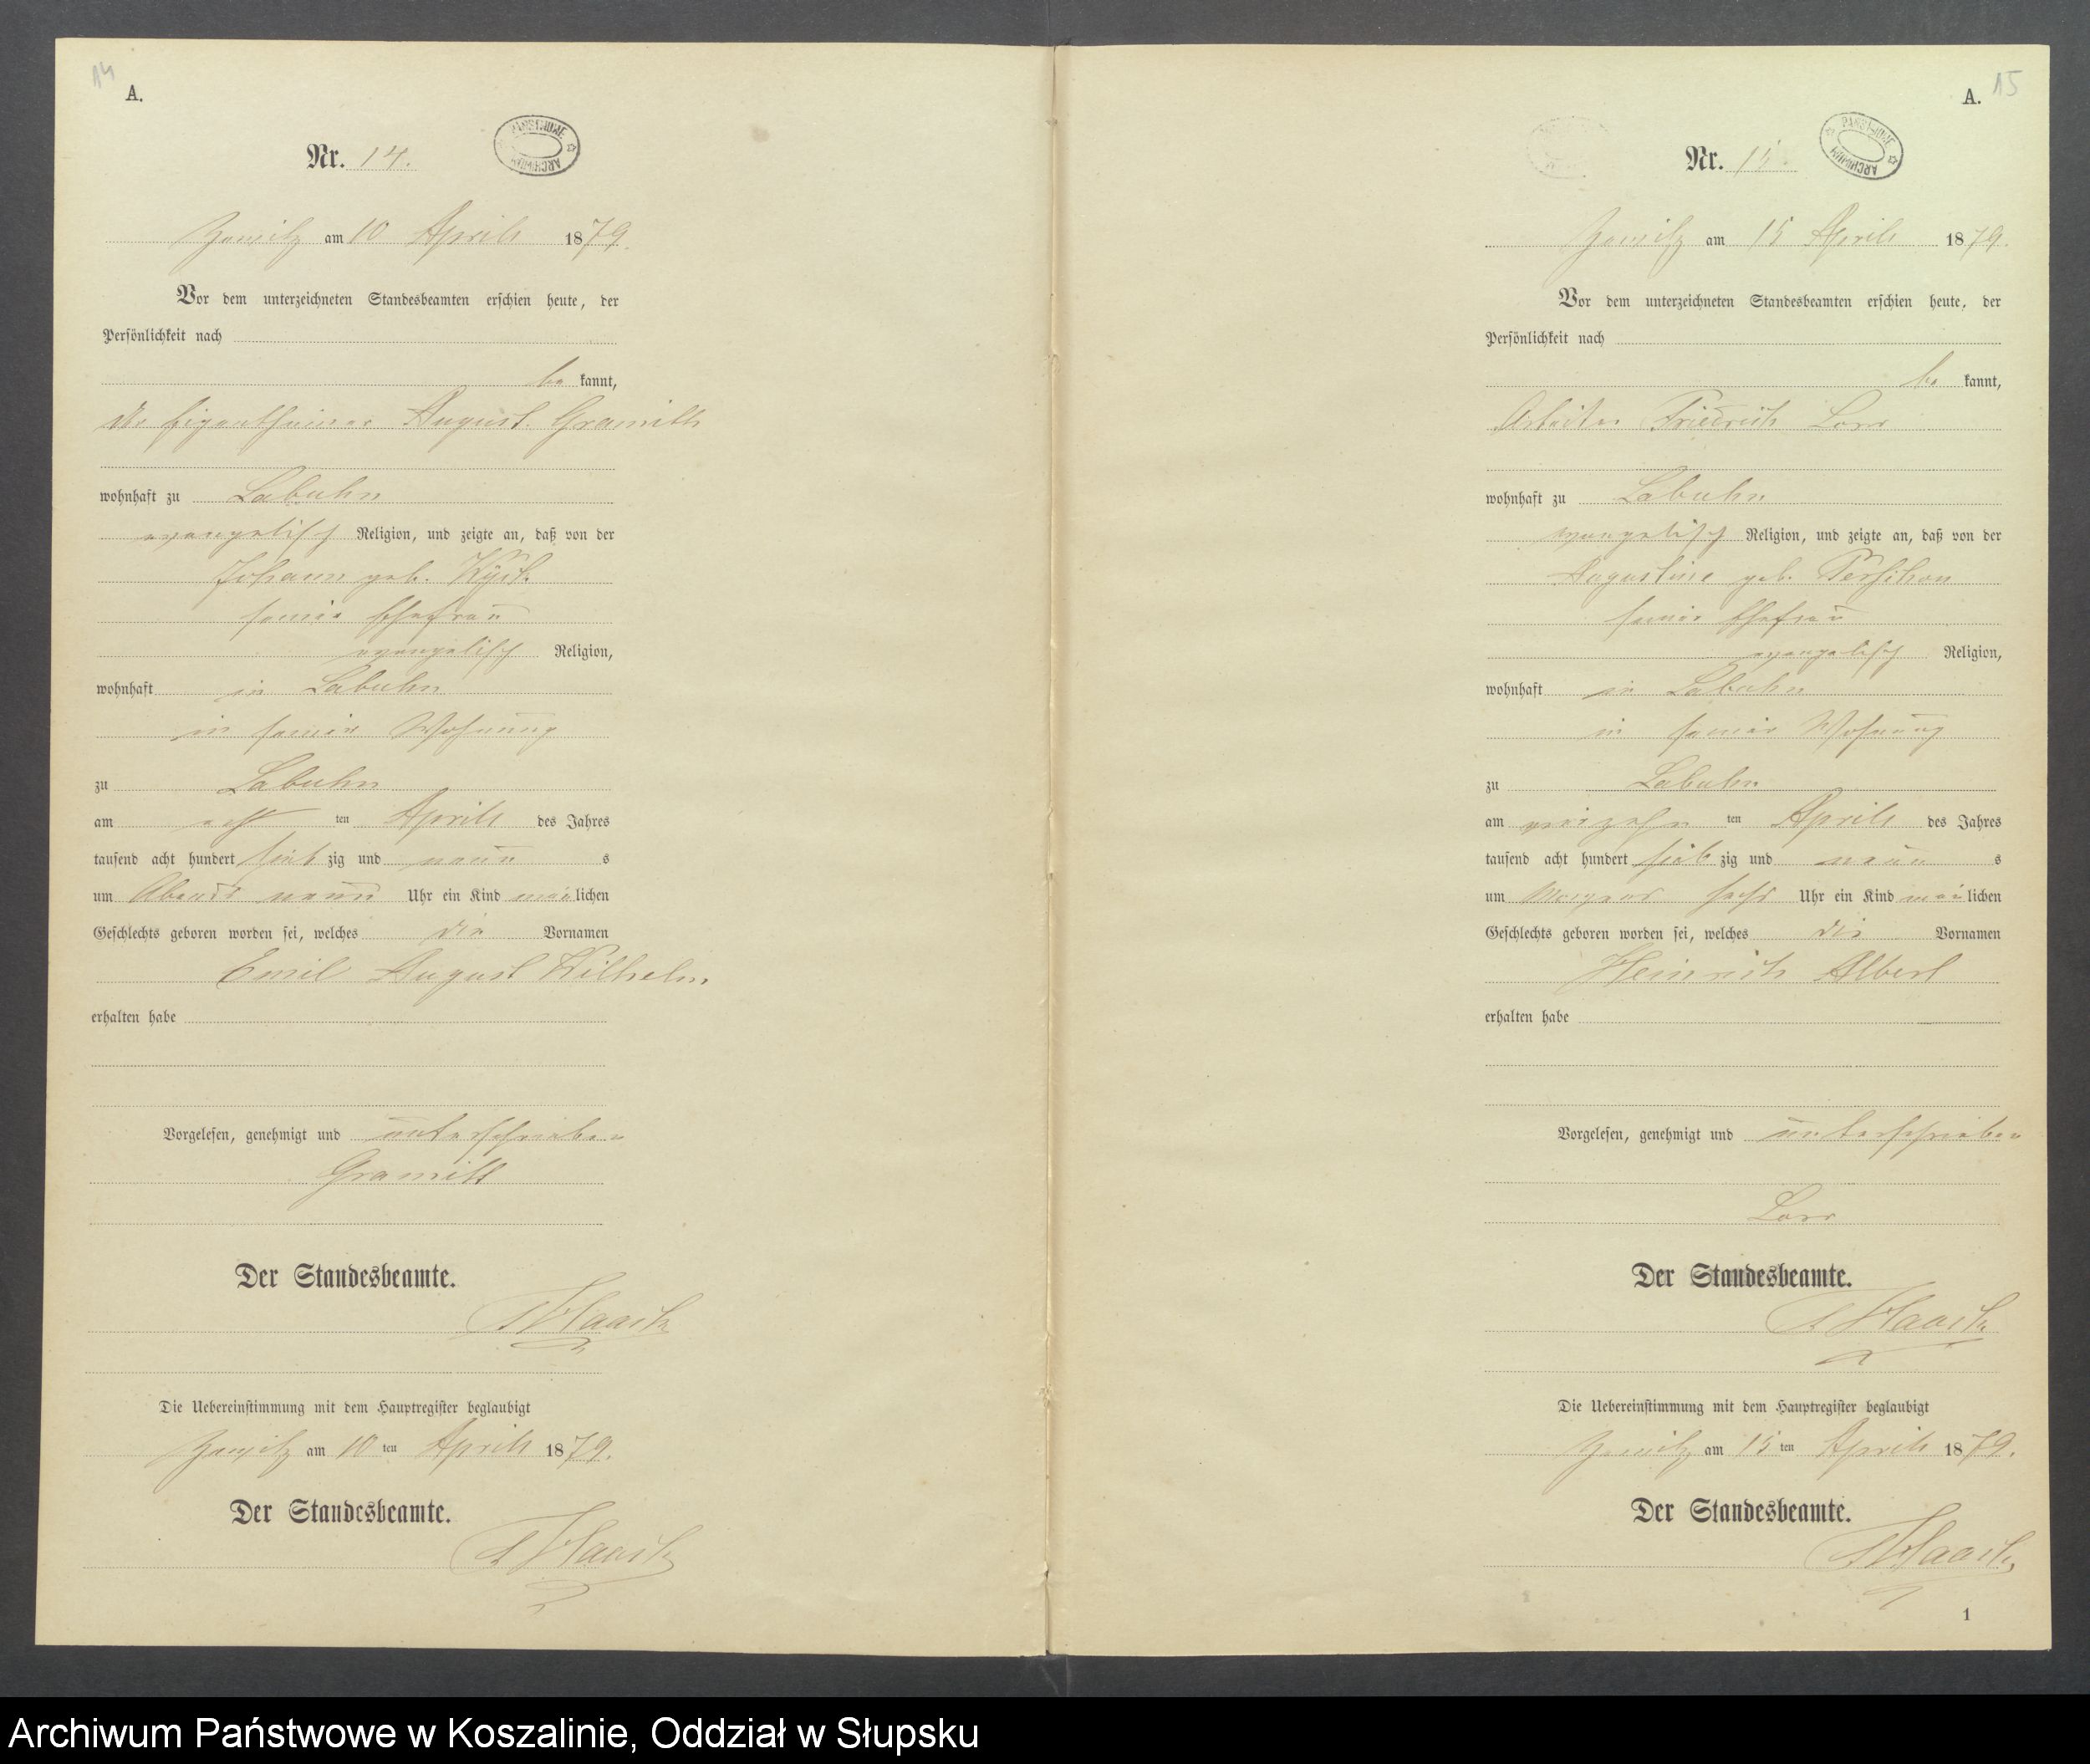 14
A.
Nr. 14.
PAŃSTWOWE ARCHIWUM
Zewitz am 10 April 1879.
Vor dem unterzeichneten Standesbeamten erschien heute, der
Persönlichkeit nach
be kannt,
der Eigenthümer August Gramitt
wohnhaft zu Labuhn
evangelisch Religion, und zeigte an, daß von der
Johann geb.
seiner Ehefrau
evangelisch Religion,
wohnhaft in Labuhn
in seiner Wohnung
zu Labuhn
am acht ten April des Jahres
tausend acht hundert sieb zig und neun s
um Abends neun Uhr ein Kind män lichen
Geschlechts geboren worden sei, welches die Vornamen
Emil August Wilhelm
erhalten habe
Vorgelesen, genehmigt und unterschrieben
Gramitt
Der Standesbeamte.
Die Uebereinstimmung mit dem Hauptregister beglaubigt
Zewitz am 10 ten April 1879.
Der Standesbeamte.
15
A.
Nr. 15
PAŃSTWOWE ARCHIWUM
Zewitz am 15 April 1879.
Vor dem unterzeichneten Standesbeamten erschien heute, der
Persönlichkeit nach
be kannt,
Arbeiter Friedrich Lorr
wohnhaft zu Labuhn
evangelisch Religion, und zeigte an, daß von der
Augustine geb.
seiner Ehefrau
evangelisch Religion,
wohnhaft in Labuhn
in seiner Wohnung
zu Labuhn
am vierzehn ten April des Jahres
tausend acht hundert sieb zig und neun s
um Morgens sechs Uhr ein Kind män lichen
Geschlechts geboren worden sei, welches die Vornamen
Heinrich Albert
erhalten habe
Vorgelesen, genehmigt und unterschrieben
Lorr
Der Standesbeamte.
Die Uebereinstimmung mit dem Hauptregister beglaubigt
Zewitz am 15 ten April 1879.
Der Standesbeamte.
1
Archiwum Państwowe w Koszalinie, Oddział w Słupsku